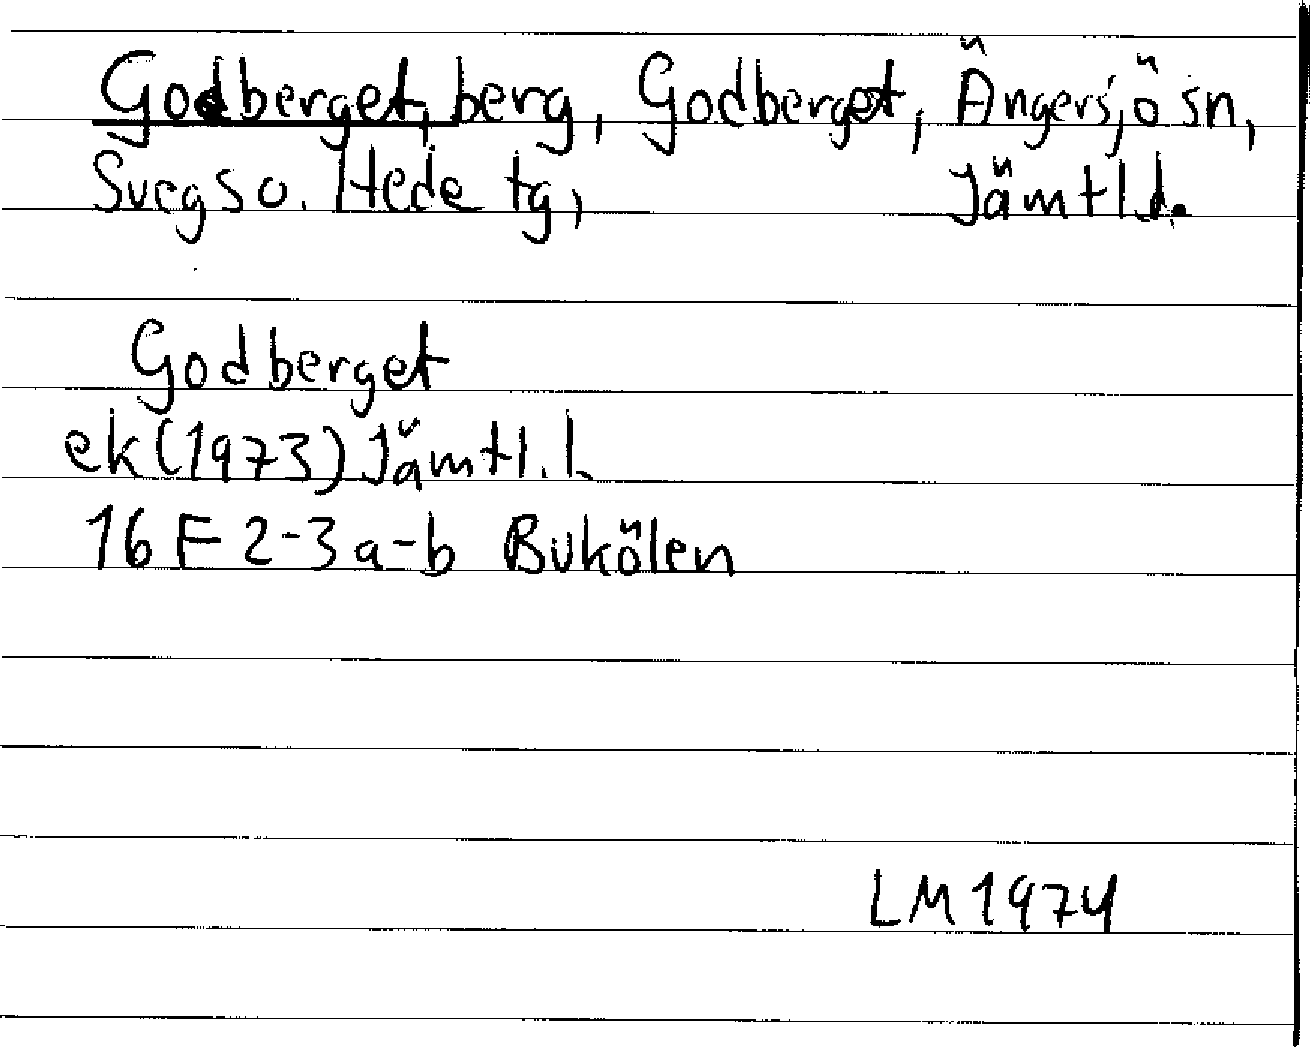 Godberget, berg, Godberget, Ängersjö sn,
Svegs o. Hede tg, Jämtl.l.
Godberget
ek (1973) Jämtl. l.
16 F 2-3 a-b Bukölen
LM 1974